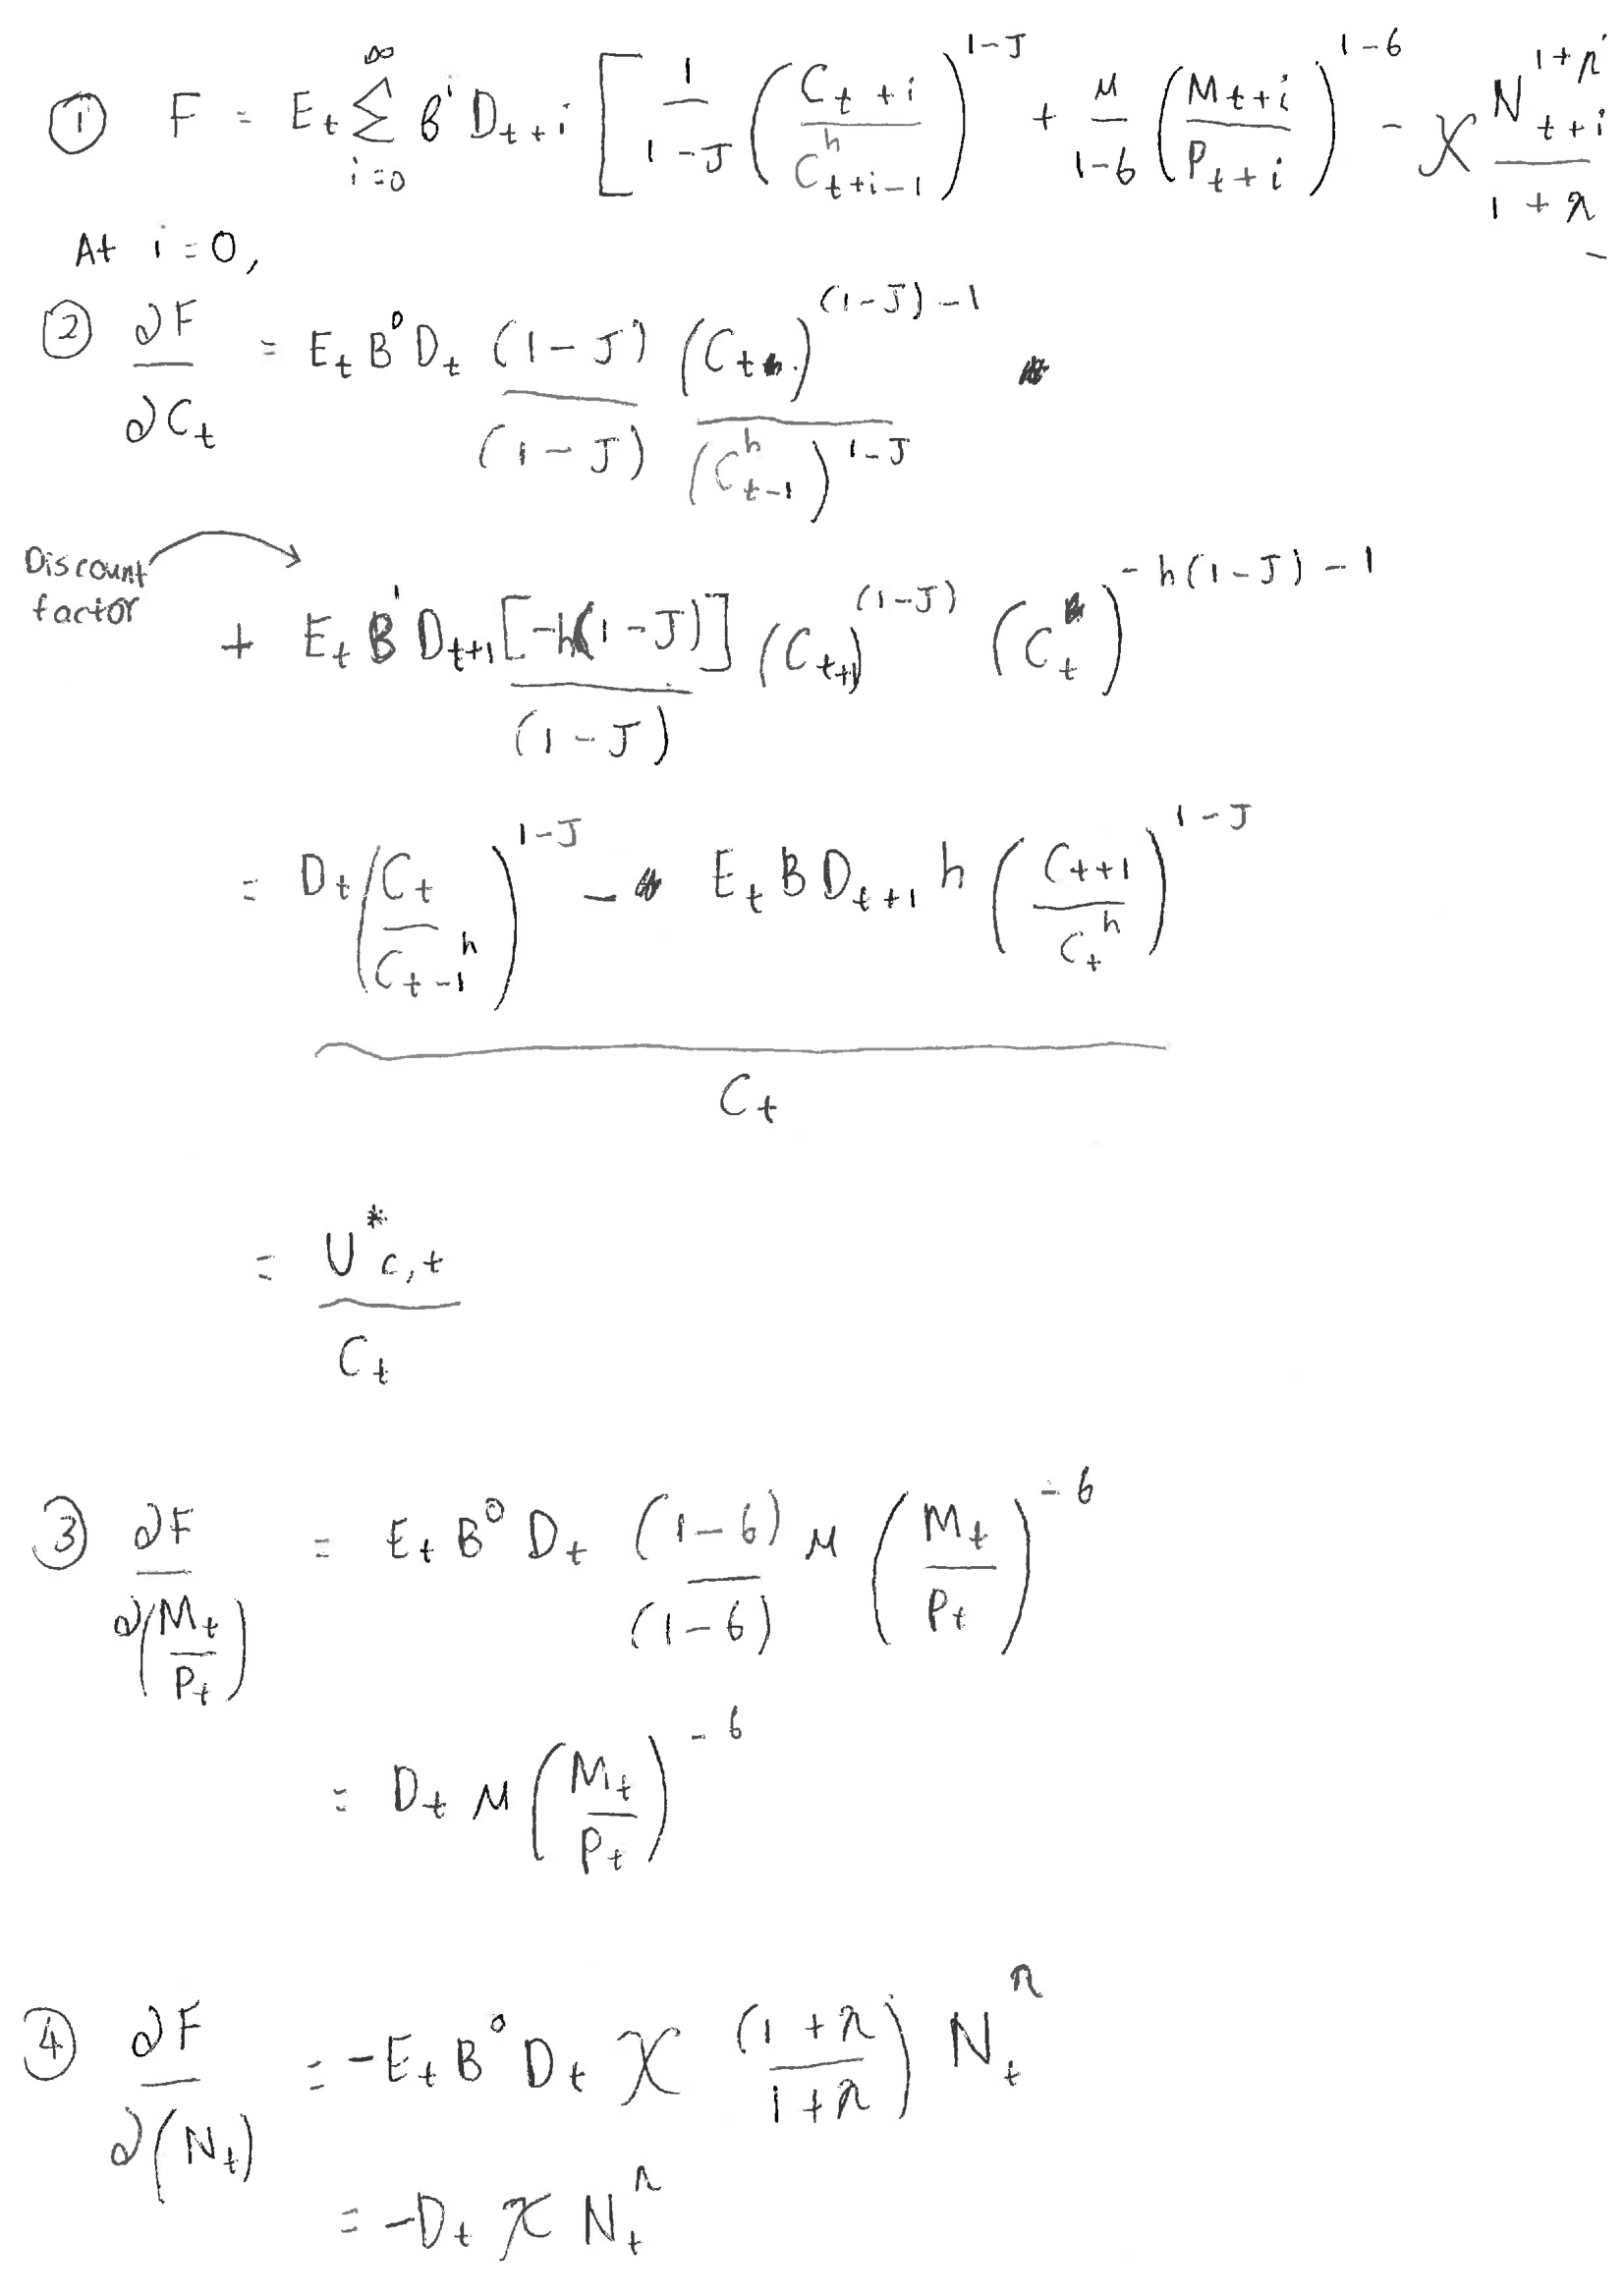 ① F = E_t ∑_{i=0}^{∞} β^i D_{t+i} [ \frac{1}{1-J} ( \frac{C_{t+i}}{C_{t+i-1}^h} )^{1-J} + \frac{μ}{1-6} ( \frac{M_{t+i}}{P_{t+i}} )^{1-6} - χ \frac{N_{t+i}^{1+n}}{1+n}
At i=0,
② \frac{∂F}{∂C_t} = E_t B^0 D_t \frac{(1-J)}{(1-J)} \frac{(C_t)^{(1-J)-1}}{(C_{t-1}^h)^{1-J}}
Discount
factor
+ E_t B^1 D_{t+1} \frac{[-h(1-J)]}{(1-J)} (C_{t+1})^{(1-J)} (C_t)^{-h(1-J)-1}
= \frac{D_t ( \frac{C_t}{C_{t-1}^h} )^{1-J} - E_t B D_{t+1} h ( \frac{C_{t+1}}{C_t^h} )^{1-J}}{C_t}
= \frac{U^*_{c,t}}{C_t}
③ \frac{∂F}{∂( \frac{M_t}{P_t} )} = E_t B^0 D_t \frac{(1-6)}{(1-6)} μ ( \frac{M_t}{P_t} )^{-6}
= D_t μ ( \frac{M_t}{P_t} )^{-6}
④ \frac{∂F}{∂(N_t)} = -E_t B^0 D_t χ ( \frac{1+n}{1+n} ) N_t^n
= -D_t χ N_t^n